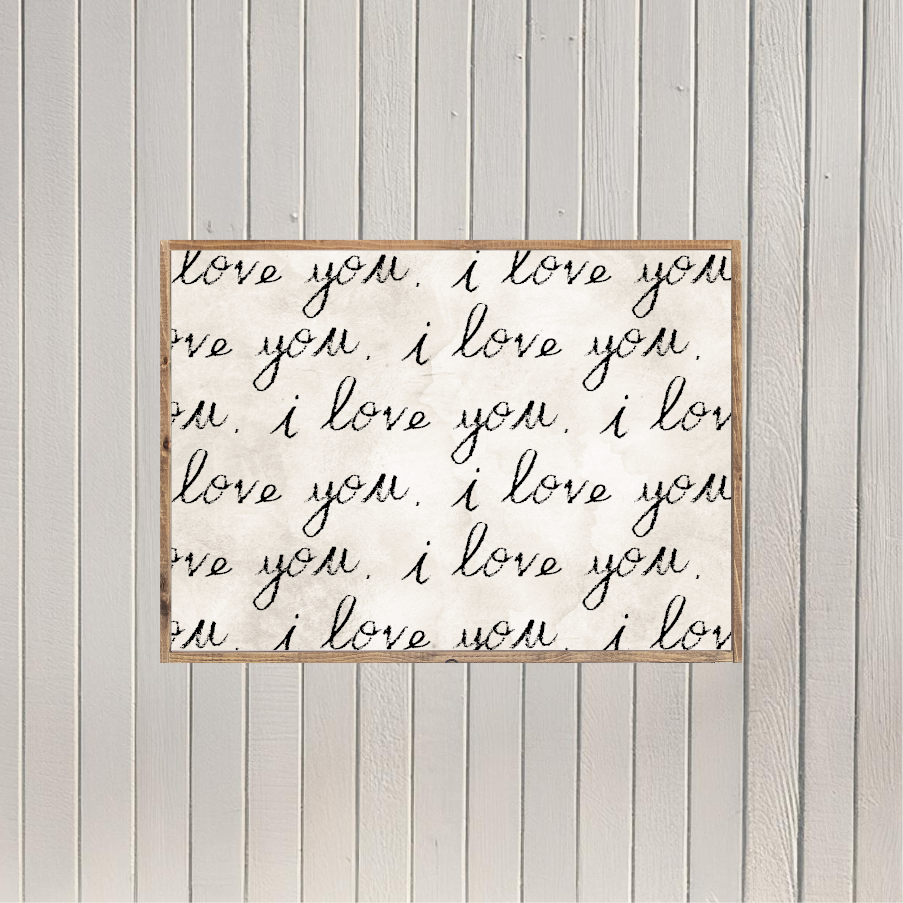 love you. i love you
ove you. i love you.
ou. i love you. i lov
love you. i love you
ove you. i love you.
ou. i love you. i lov